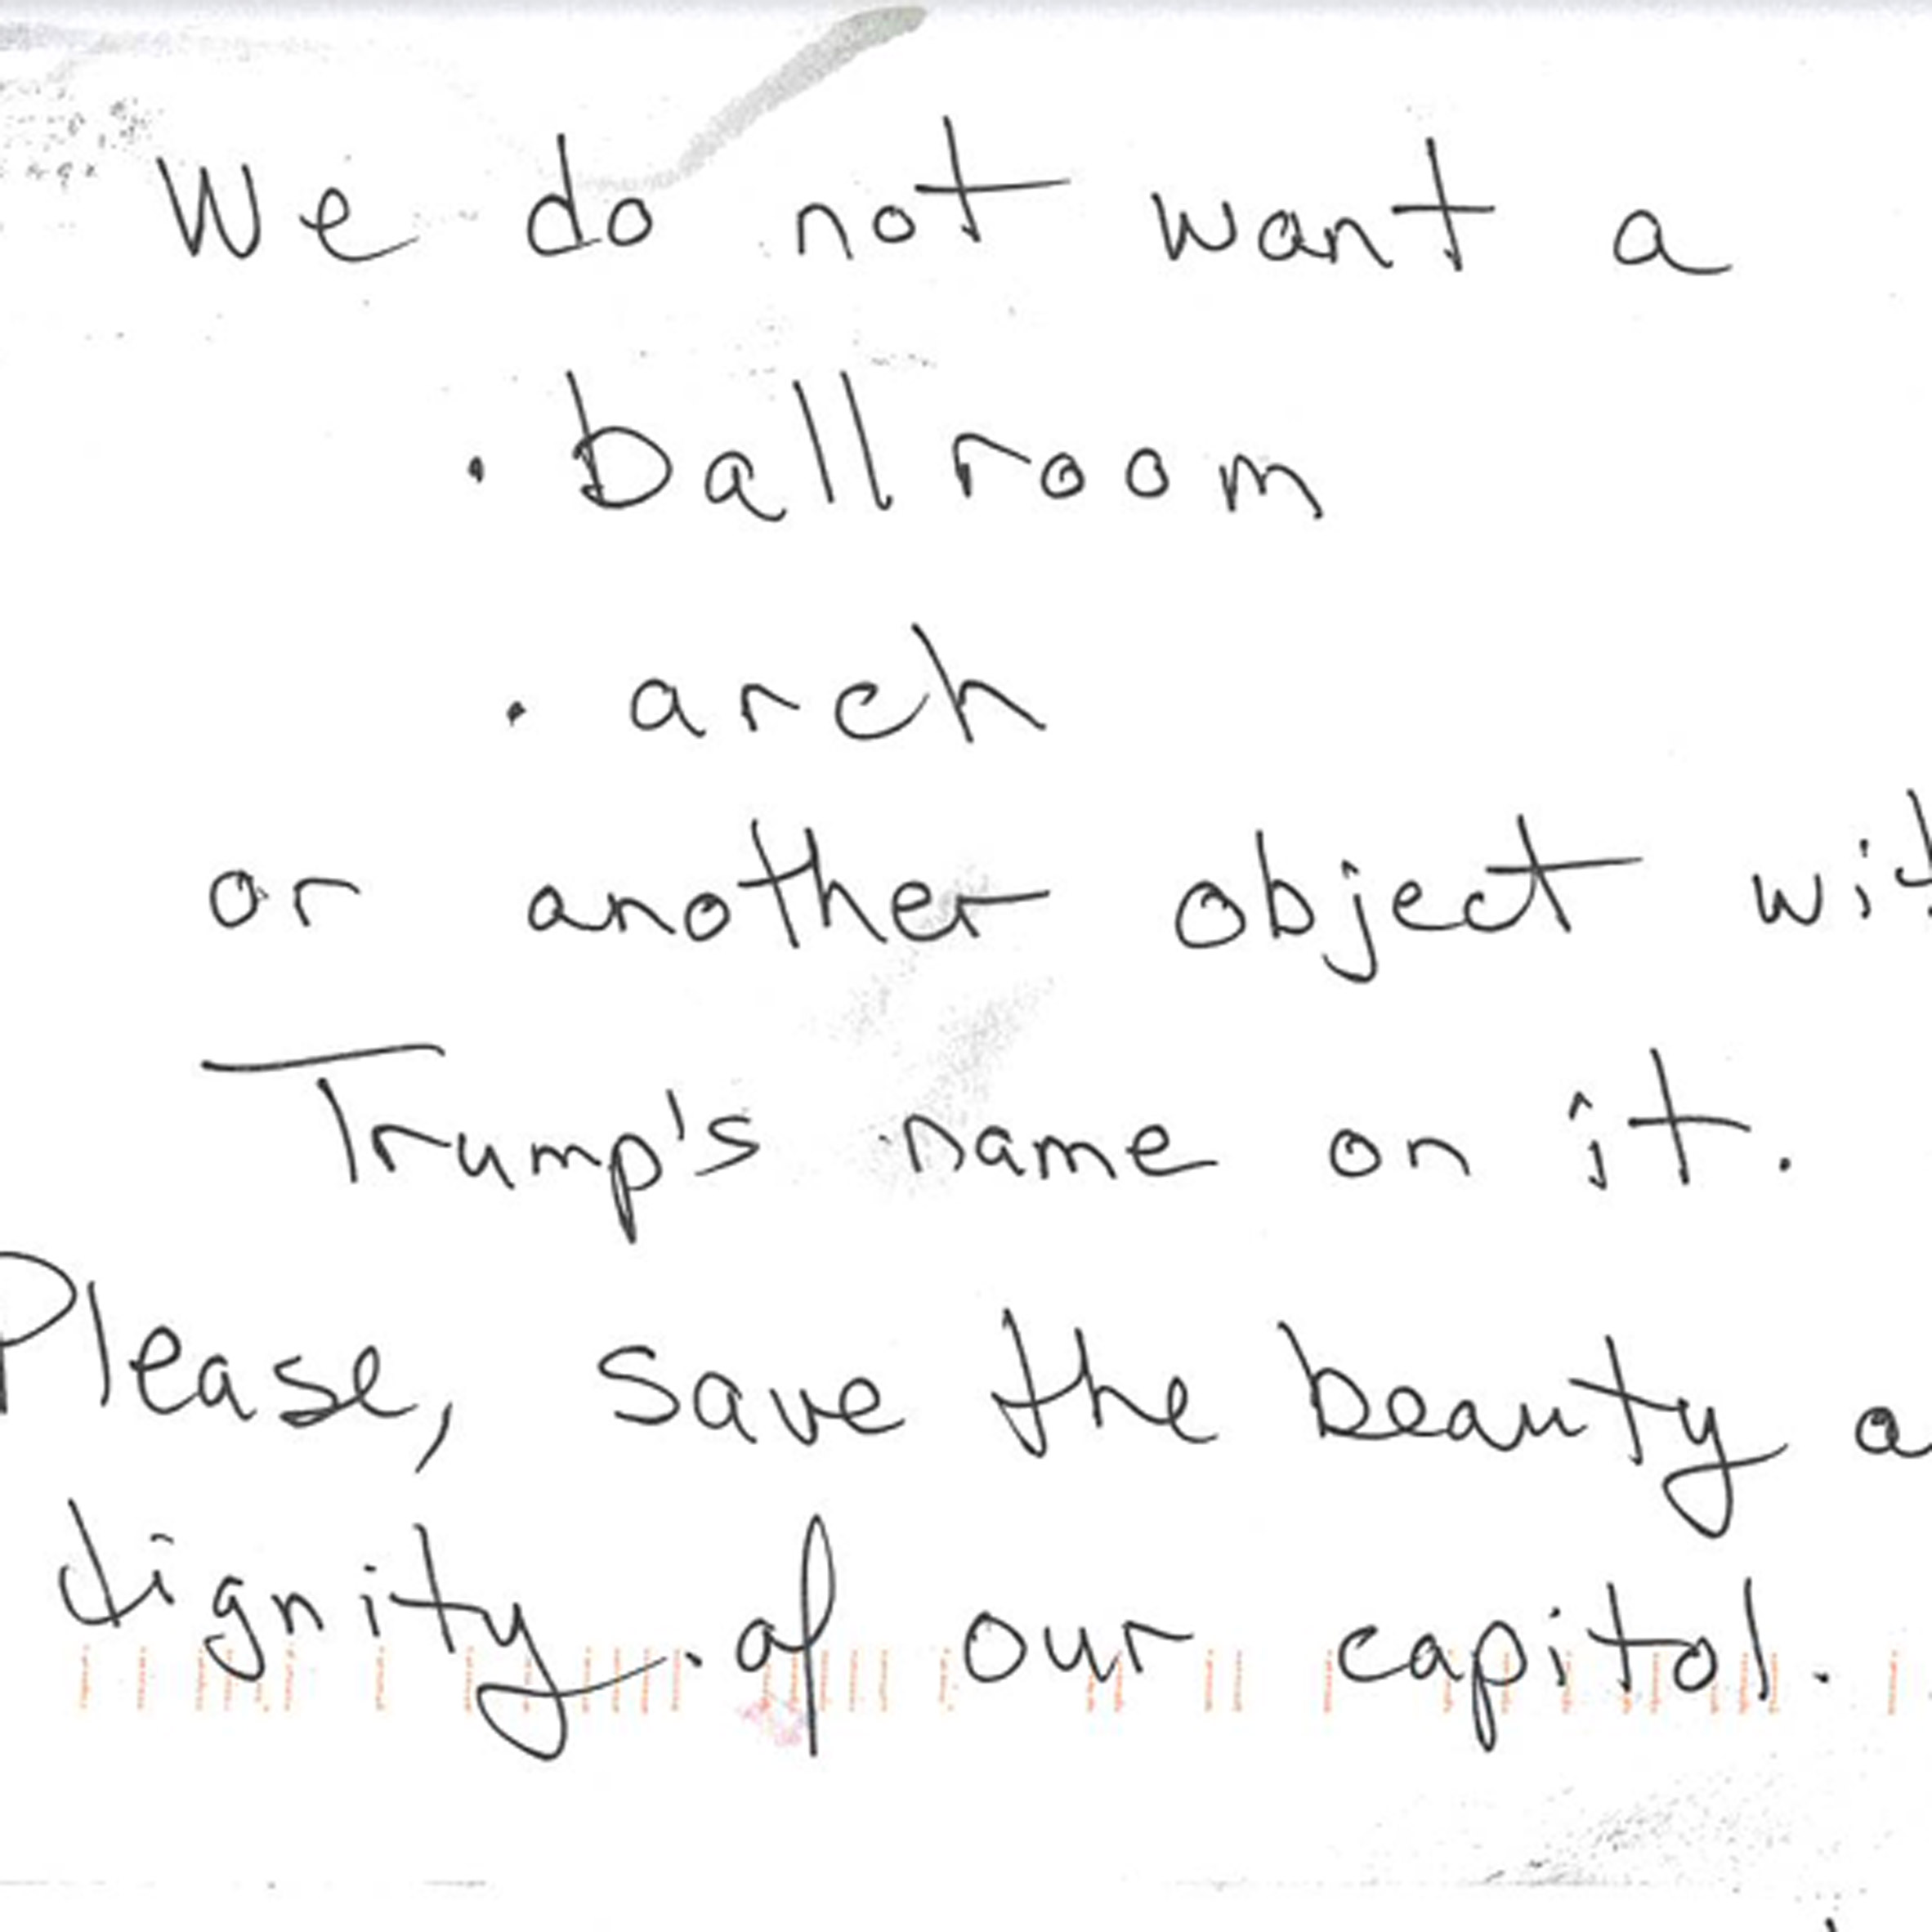 We do not want a
· ballroom
· arch
or another object wit
Trump's name on it.
Please, save the beauty a
dignity of our capitol.